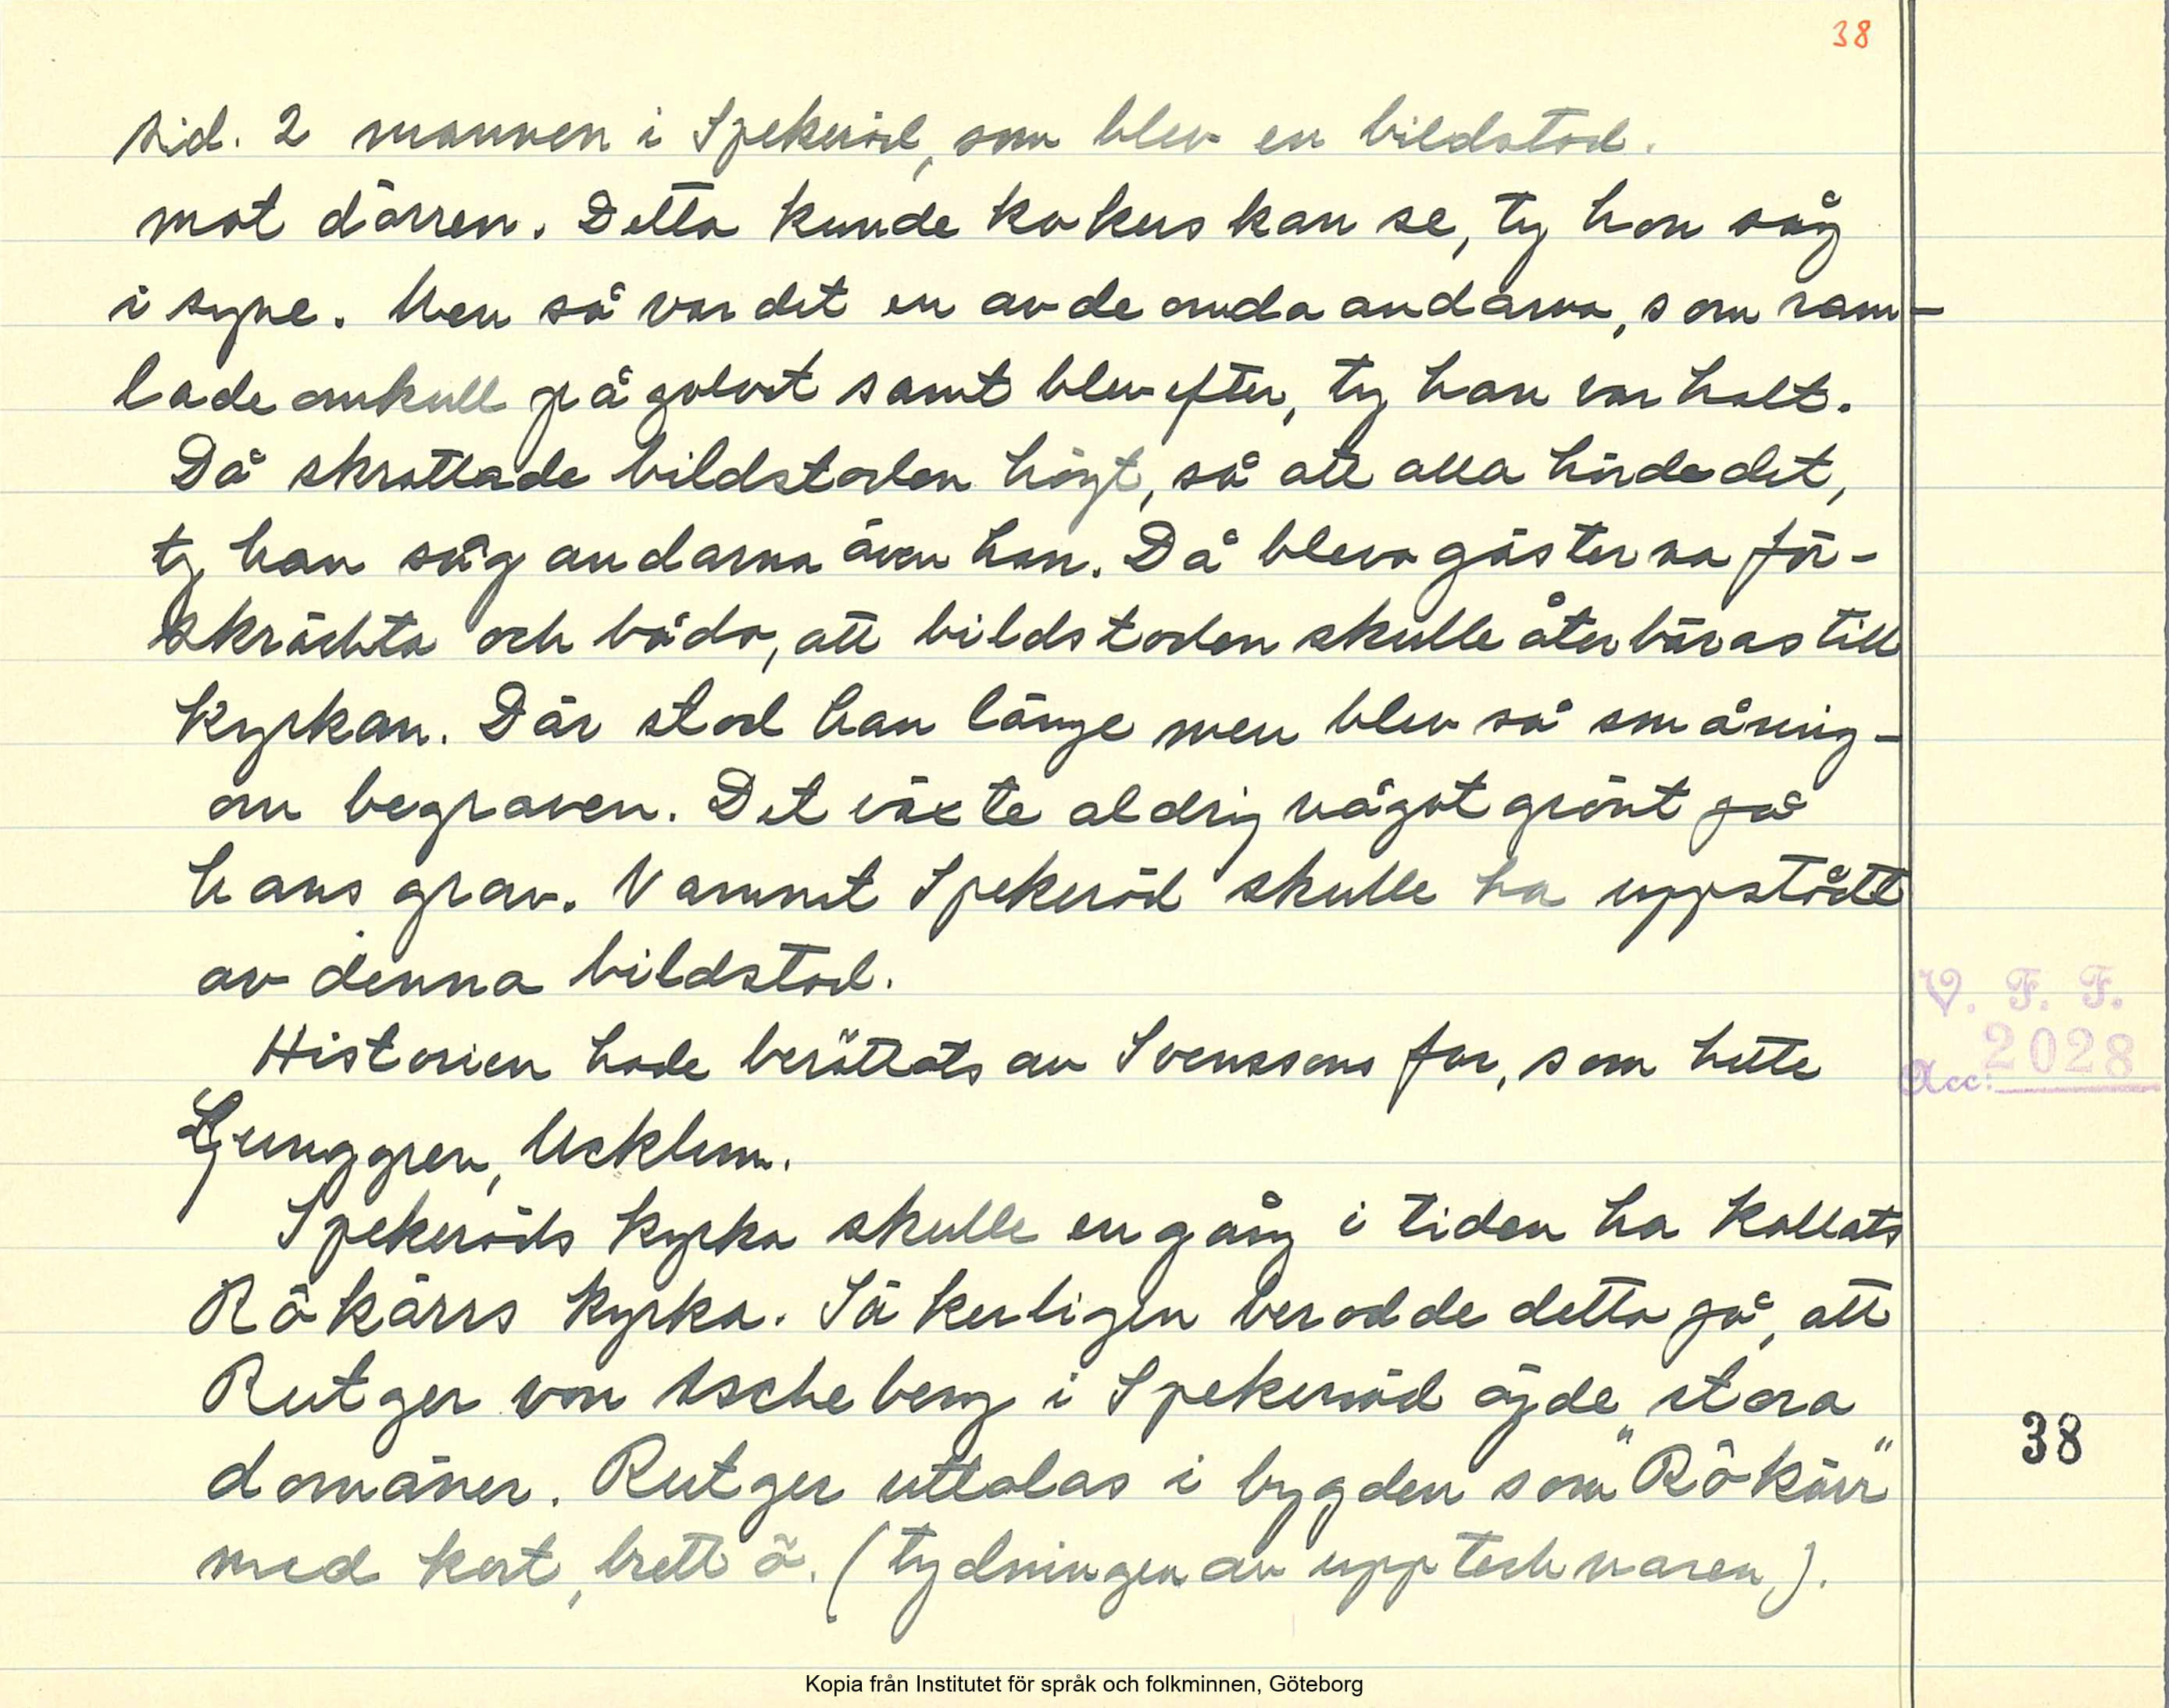 38
sid. 2 mannen i Spekeröd, som blev en bildstod.
mot dörren. Detta kunde kokerskan se, ty hon såg
i syne. Men så var det en av de onda andarna, som ram-
lade omkull på golvet samt blev efter, ty han var halt.
Då skrattade bildstoden högt, så att alla hörde det,
ty han såg andarna även han. Då blevo gästerna för-
skräckta och bådo, att bildstoden skulle återbäras till
kyrkan. Där stod han länge men blev så småning-
om begraven. Det växte aldrig något grönt på
hans grav. Namnet Spekeröd skulle ha uppstått
av denna bildstod.
Historien hade berättats av Svenssons far, som hette
Ljunggren, Ucklum.
Spekeröds kyrka skulle en gång i tiden ha kallats
Rökärrs kyrka. Säkerligen berodde detta på, att
Rutger von Ascheberg i Spekeröd ägde stora
domäner. Rutger uttalas i bygden som "Rökärr"
med kort, brett ö. (tydningen av upptecknaren).
V. F. F.
Acc: 2028
38
Kopia från Institutet för språk och folkminnen, Göteborg